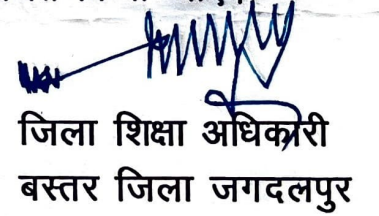 जिला शिक्षा अधिकारी
बस्तर जिला जगदलपुर